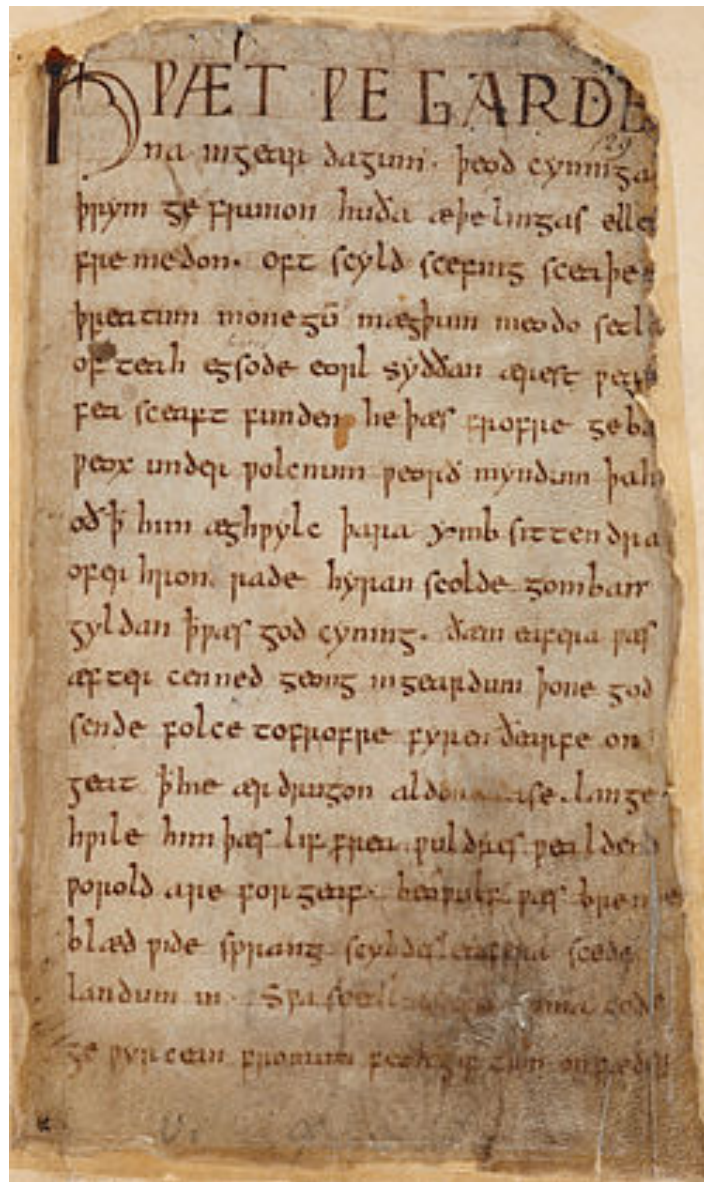 HǷÆT ǷE GARDE
na ingear dagum. þeod cyninga
þrym ge frunon huða æþelingas elle
fremedon. oft scyld scefing sceaþe
þreatum monegū mægþum meodo setla
of teah egsode eorl syððan ærest ƿear
fea sceaft funden he þæs frofre geba
ƿeox under ƿolcnum ƿeorð myndum þah
oð ꝥ him æghƿylc þara ymb sittendra
ofer hron rade hyran scolde gomban
gyldan ꝥ ƿæs god cyning. ðæm eafera ƿæs
æfter cenned geong in geardum þone god
sende folce tofrofre fyren ðearfe on
geat ꝥ hie ær drugon lange
hƿile him þæs lif frea ƿuldres ƿealdend
ƿorold are for geaf. beoƿulf ƿæs breme
blæd ƿide sprang scyldes eafera scede
landum in. Sƿa sceal
ge ƿyrcean fromum feoh giftum on fæder